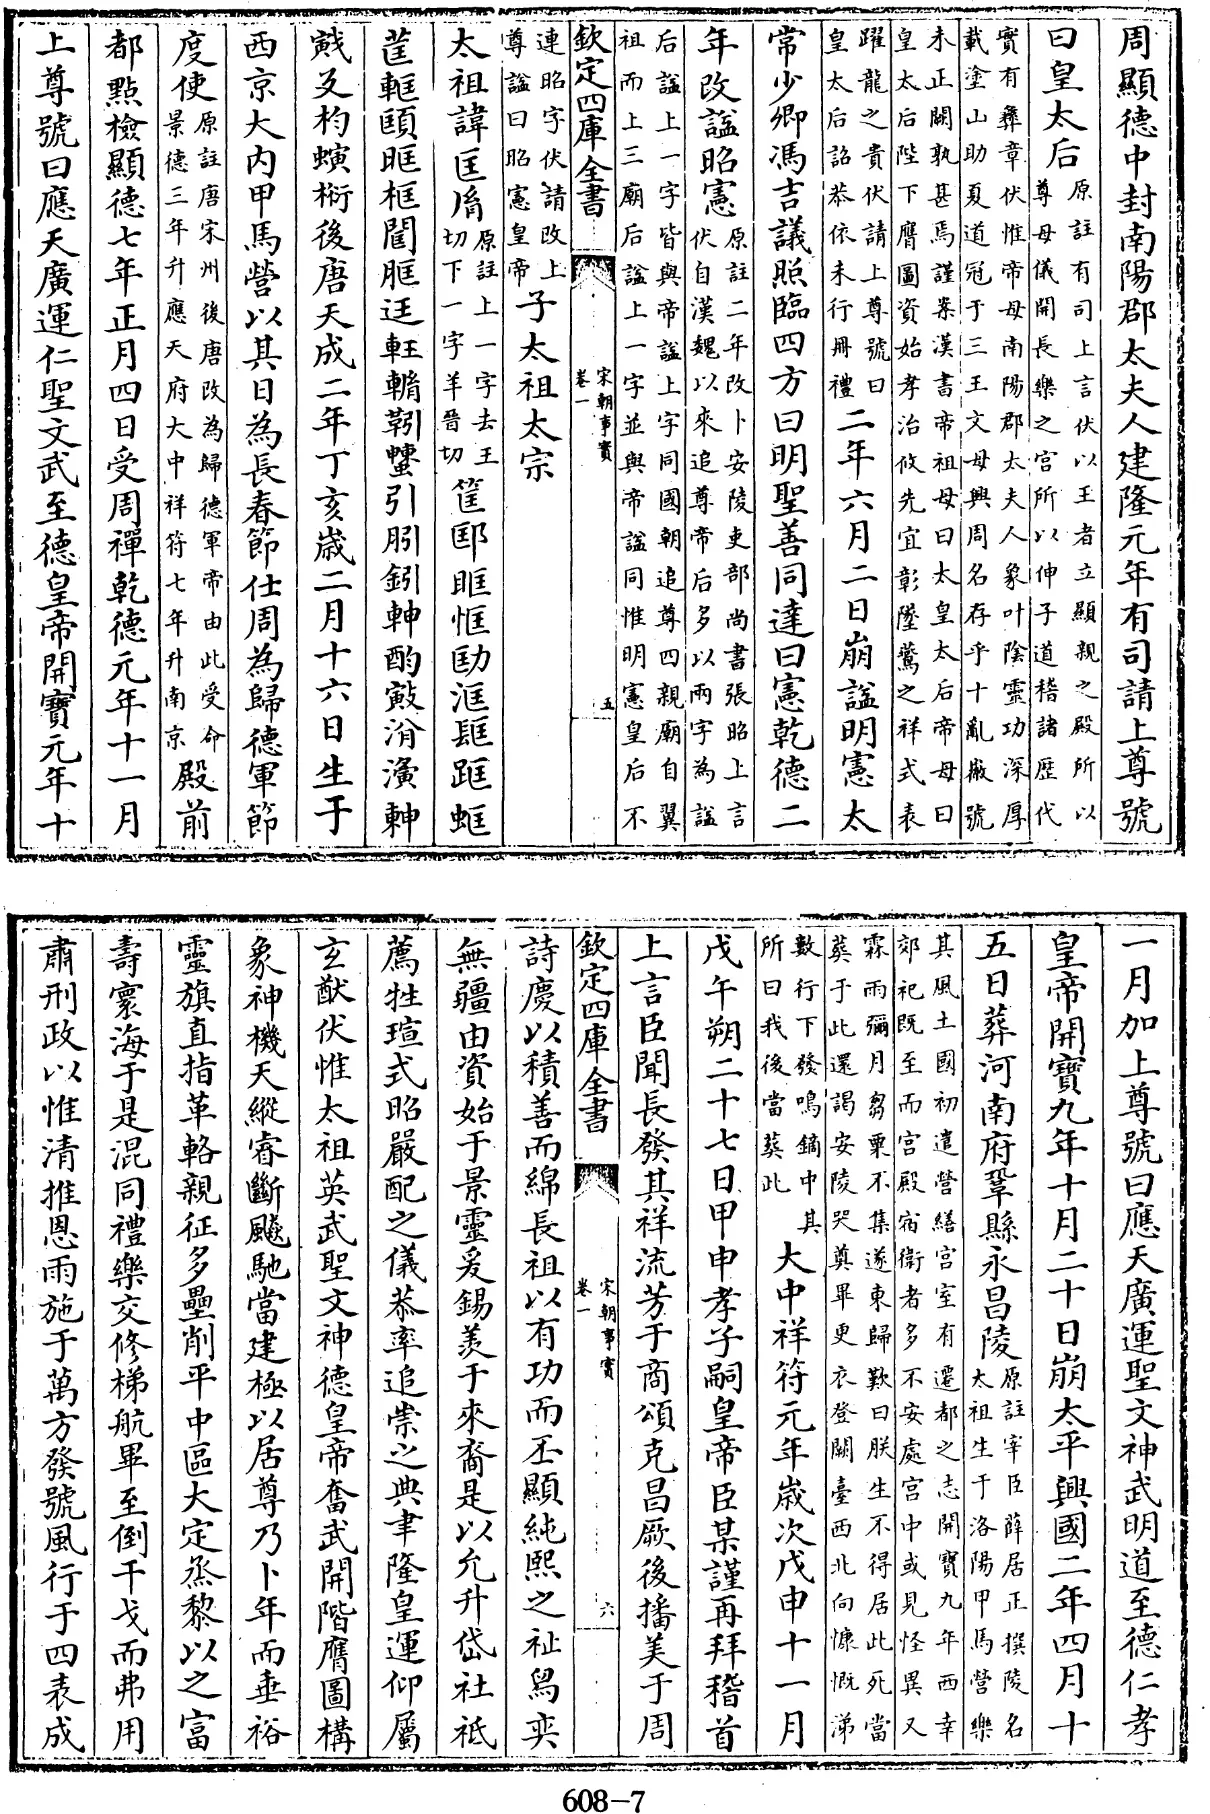 周顯德中封南陽郡太夫人建隆元年有司請上尊號
曰皇太后原註有司上言伏以王者立顯親之殿所以
尊母儀開長樂之宮所以伸子道稽諸歷代
實有彝章伏惟帝母南陽郡太夫人象叶陰靈功深厚
載塗山助夏道冠于三王文母興周名存乎十亂徽號
未正闕孰甚焉謹案漢書帝祖母曰太皇太后帝母曰
皇太后陛下膺圖資始孝治攸先宜彰墜鶯之祥式表
躍龍之貴伏請上尊號曰
皇太后詔恭依未行冊禮二年六月二日崩謚明憲太
常少卿馮吉議照臨四方曰明聖善同達曰憲乾德二
年改謚昭憲原註二年改卜安陵吏部尚書張昭上言
伏自漢魏以來追尊帝后多以兩字為謚
后謚上一字皆與帝謚上字同國朝追尊四親廟自翼
祖而上三廟后謚上一字並與帝謚同惟明憲皇后不
欽定四庫全書
宋朝事實
卷一
五
連昭字伏請改上
尊謚曰昭憲皇帝子太祖太宗
太祖諱匡胤原註上一字去王
切下一字羊晉切筐邼眶恇劻洭
軭眶框迋靷引釿酳
戭㕛杓螾㭕後唐天成二年丁亥歲二月十六日生于
西京大內甲馬營以其日為長春節仕周為歸德軍節
度使原註唐宋州後唐改為歸德軍帝由此受命
景德三年升應天府大中祥符七年升南京殿前
都點檢顯德七年正月四日受周禪乾德元年十一月
上尊號曰應天廣運仁聖文武至德皇帝開寶元年十
一月加上尊號曰應天廣運聖文神武明道至德仁孝
皇帝開寶九年十月二十日崩太平興國二年四月十
五日葬河南府鞏縣永昌陵原註宰臣薛居正撰陵名
太祖生于洛陽甲馬營樂
其風土國初遣營繕宮室有遷都之志開寶九年西幸
郊祀既至而宮殿宿衛者多不安處宮中或見怪異又
霖雨彌月芻粟不集遂東歸歎曰朕生不得居此死當
葬于此還謁安陵哭奠畢更衣登闕臺西北向慷慨涕
數行下發鳴鏑中其
所曰我後當葬此大中祥符元年歲次戊申十一月
戊午朔二十七日甲申孝子嗣皇帝臣某謹再拜稽首
上言臣聞長發其祥流芳于商頌克昌厥後播美于周
欽定四庫全書
宋朝事實
卷一
六
詩慶以積善而綿長祖以有功而丕顯純熙之祉舄奕
無疆由資始于景靈爰錫羨于來裔是以允升岱社祗
薦牲瑄式昭嚴配之儀恭率追崇之典聿隆皇運仰屬
玄猷伏惟太祖英武聖文神德皇帝奮武開階膺圖構
象神機天縱睿斷飈馳當建極以居尊乃卜年而垂裕
靈旗直指革輅親征多壘削平中區大定烝黎以之富
壽寰海于是混同禮樂交修梯航畢至倒干戈而弗用
肅刑政以惟清推恩雨施于萬方發號風行于四表成
608-7